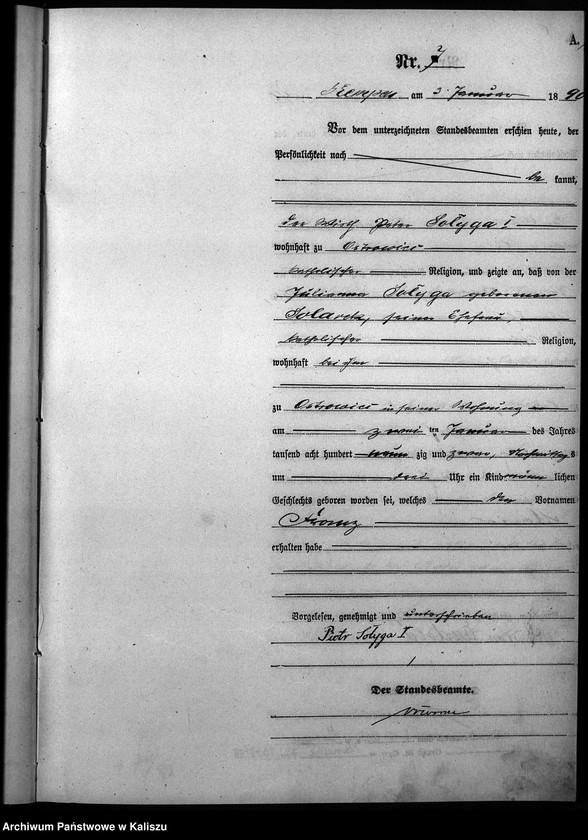 A.
Nr. 7
Kempen am 3 Januar 1890
Vor dem unterzeichneten Standesbeamten erschien heute, der
Persönlichkeit nach
be kannt,
der Wirth Peter Sołyga I
wohnhaft zu Ostrowiec
katholischer Religion, und zeigte an, daß von der
Julianna Sołyga geborenen
seiner Ehefrau,
katholischer Religion,
wohnhaft bei ihm
zu Ostrowiec in seiner Wohnung
am zwei ten Januar des Jahres
tausend acht hundert neun zig und Nachmittags
um drei Uhr ein Kind männ lichen
Geschlechts geboren worden sei, welches den Vornamen
Franz
erhalten habe
Vorgelesen, genehmigt und unterschrieben
Piotr Sołyga I
Der Standesbeamte.
Archiwum Państwowe w Kaliszu